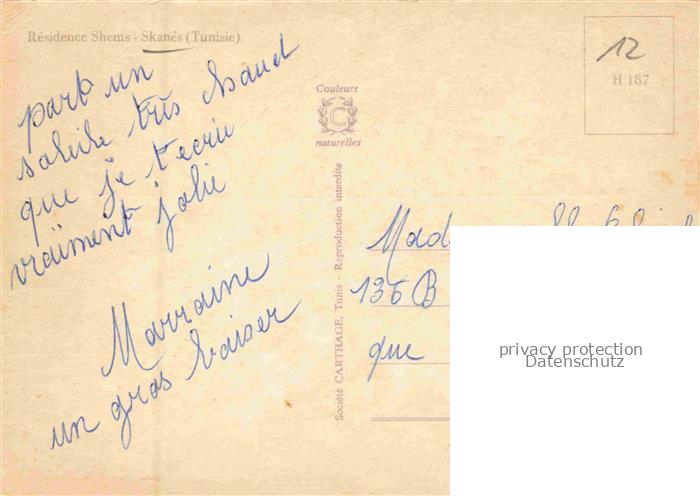 Résidence Shems - Skanès (Tunisie)
part un
soleil très chaud
que je t'ecrie
vraiment jolie
Marraine
un gros baiser
Couleurs
naturelles
Société CARTHAGE, Tunis - Reproduction interdite
12
H 187
Mad
136 B
que
privacy protection
Datenschutz